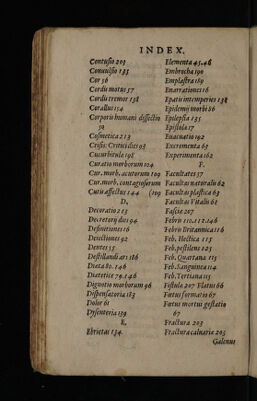 INDEX.
Contusio 203
Convulsio 135
Cor 56
Cordis motus 57
Cordis tremor 138
Corallus 154
Corporis humani dissectio
50
Cosmetica 213
Crisis: Critici dies 93
Cucurbitulæ 198
Curatio morborum 104
Cur. morb. acutorum 109
Cur. morb. contagiosorum
Curis affectus 144 (109
D,
Decoratio 213
Decretorÿ dies 94
Definitiones 16
Deiectiones 92
Dentes 55
Destillandi ars 186
Diæta 80. 146
Diætetice 79. 146
Dignotio morborum 96
Dispensatoria 183
Dolor 61
Dysenteria 139
E.
Ebrietas 134.
Elementa 45. 46
Embrocha 190
Emplastra 189
Enarrationes 16
Epatis intemperies 138
Epidemÿ morbi 86
Epilepsia 135
Epistola 17
Evacuatio 192
Excrementa 63
Experimenta 162
F.
Facultates 57
Facultas naturalis 62
Facultas plastica 63
Facultas Vitalis 61
Fasciæ 207
Febris 110. 112. 146
Febris Britannica 116
Feb. Hectica 115
Feb. pestilens 125
Feb. Quartana 115
Feb. Sanguinea 114
Feb. Tertiana 115
Fistula 207 Flatus 66
Fœtus formatio 67
Fœtus mortus gestatio
67
Fractura 203
Fractura calvariæ 205
Galenus